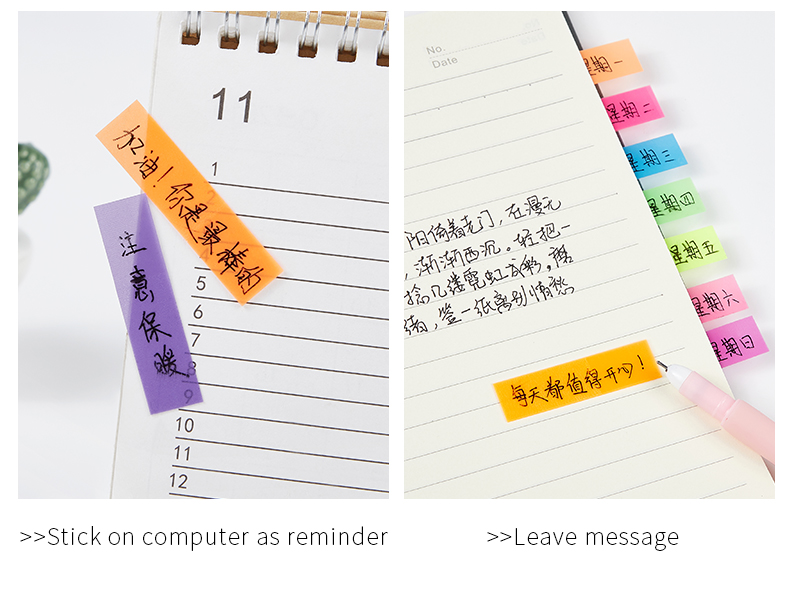 11
1
加油！你是最棒的
注意保暖
4
5
6
7
8
9
10
11
12
No.
Date
星期一
星期二
星期三
星期四
星期五
星期六
星期日
阳倚着老门，在漫无
，渐渐西沉。轻把一
捻几缕霓虹云彩，磨
绪，签一纸离别情愁
每天都值得开心！
>>Stick on computer as reminder
>>Leave message